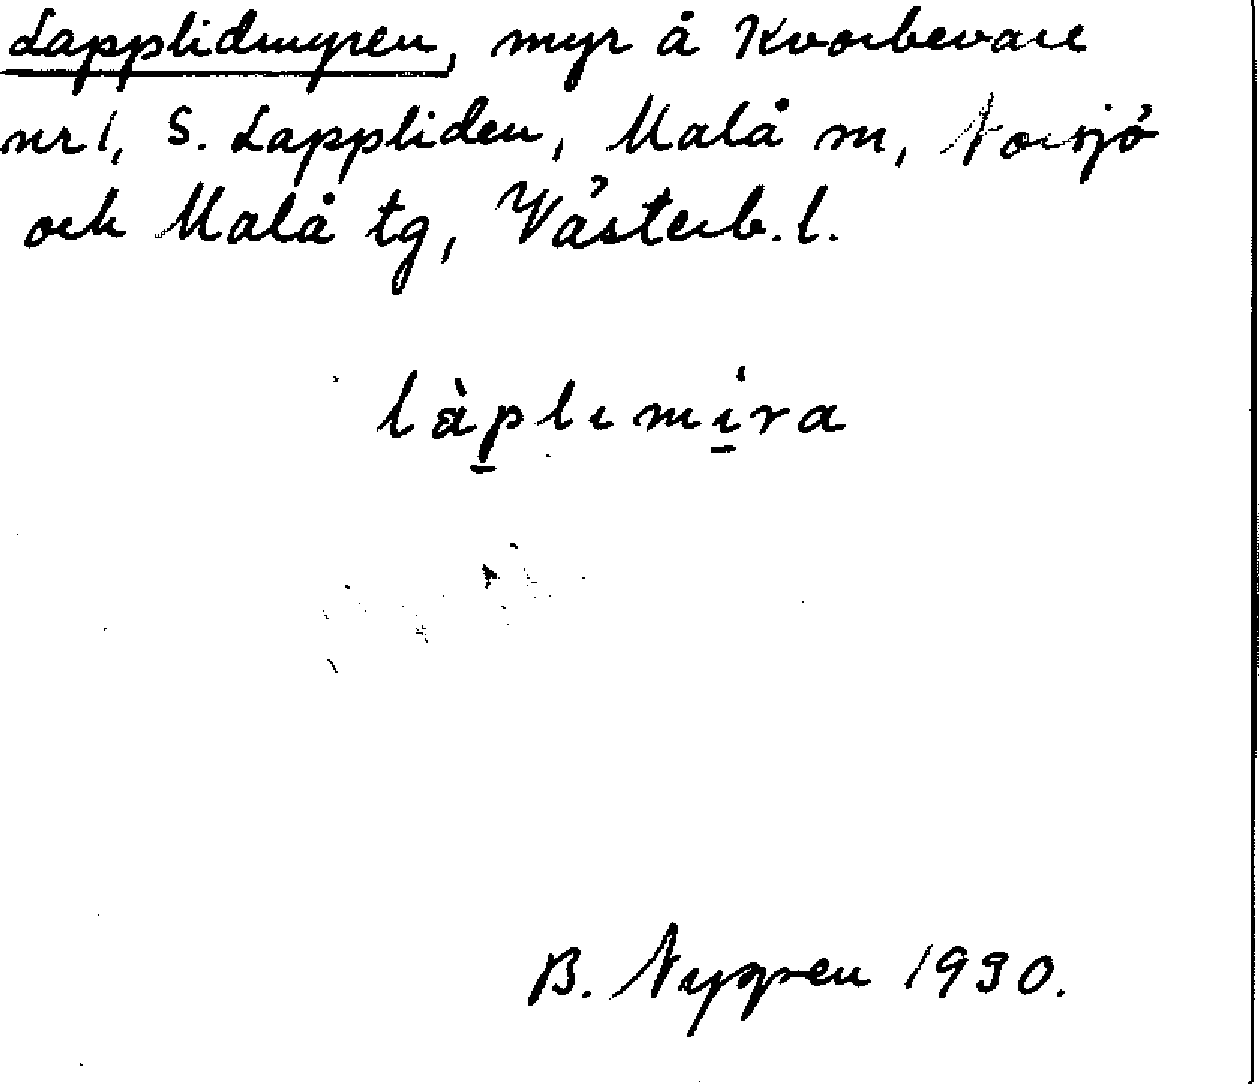 Lapplidmyren, myr å Kvorbevare
nr 1, S. Lappliden, Malå sn, Norsjö
och Malå tg, Västerb. l.
làp̱lımí̱ra
B. Nygren 1930.